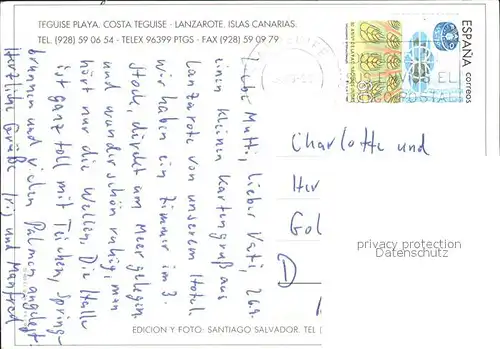 TEGUISE PLAYA. COSTA TEGUISE - LANZAROTE. ISLAS CANARIAS.
TEL. (928) 59 06 54 - TELEX 96399 PTGS - FAX (928) 59 09 79
Liebe Mutti, lieber Vati, 26.9.
einen kleinen Kartengruß aus
Lanzarote von unserem Hotel.
Wir haben ein Zimmer im 3.
Stock, direkt am Meer gelegen
und wunderschön ruhig, man
hört nur die Wellen. Die Halle
ist ganz toll mit Teichen, Spring-
brunnen und vielen Palmen angelegt.
Herzliche Grüße und Manfred
ESPAÑA correos
Charlotte und
Her
Gol
D
privacy protection
Datenschutz
EDICION Y FOTO: SANTIAGO SALVADOR. TEL (